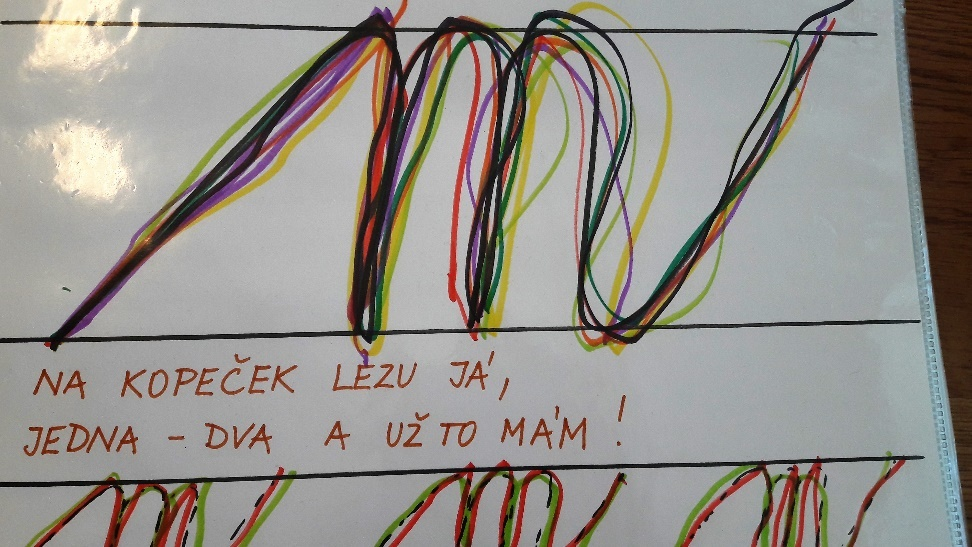 m
NA KOPEČEK LEZU JÁ,
JEDNA - DVA A UŽ TO MÁM!
m m m